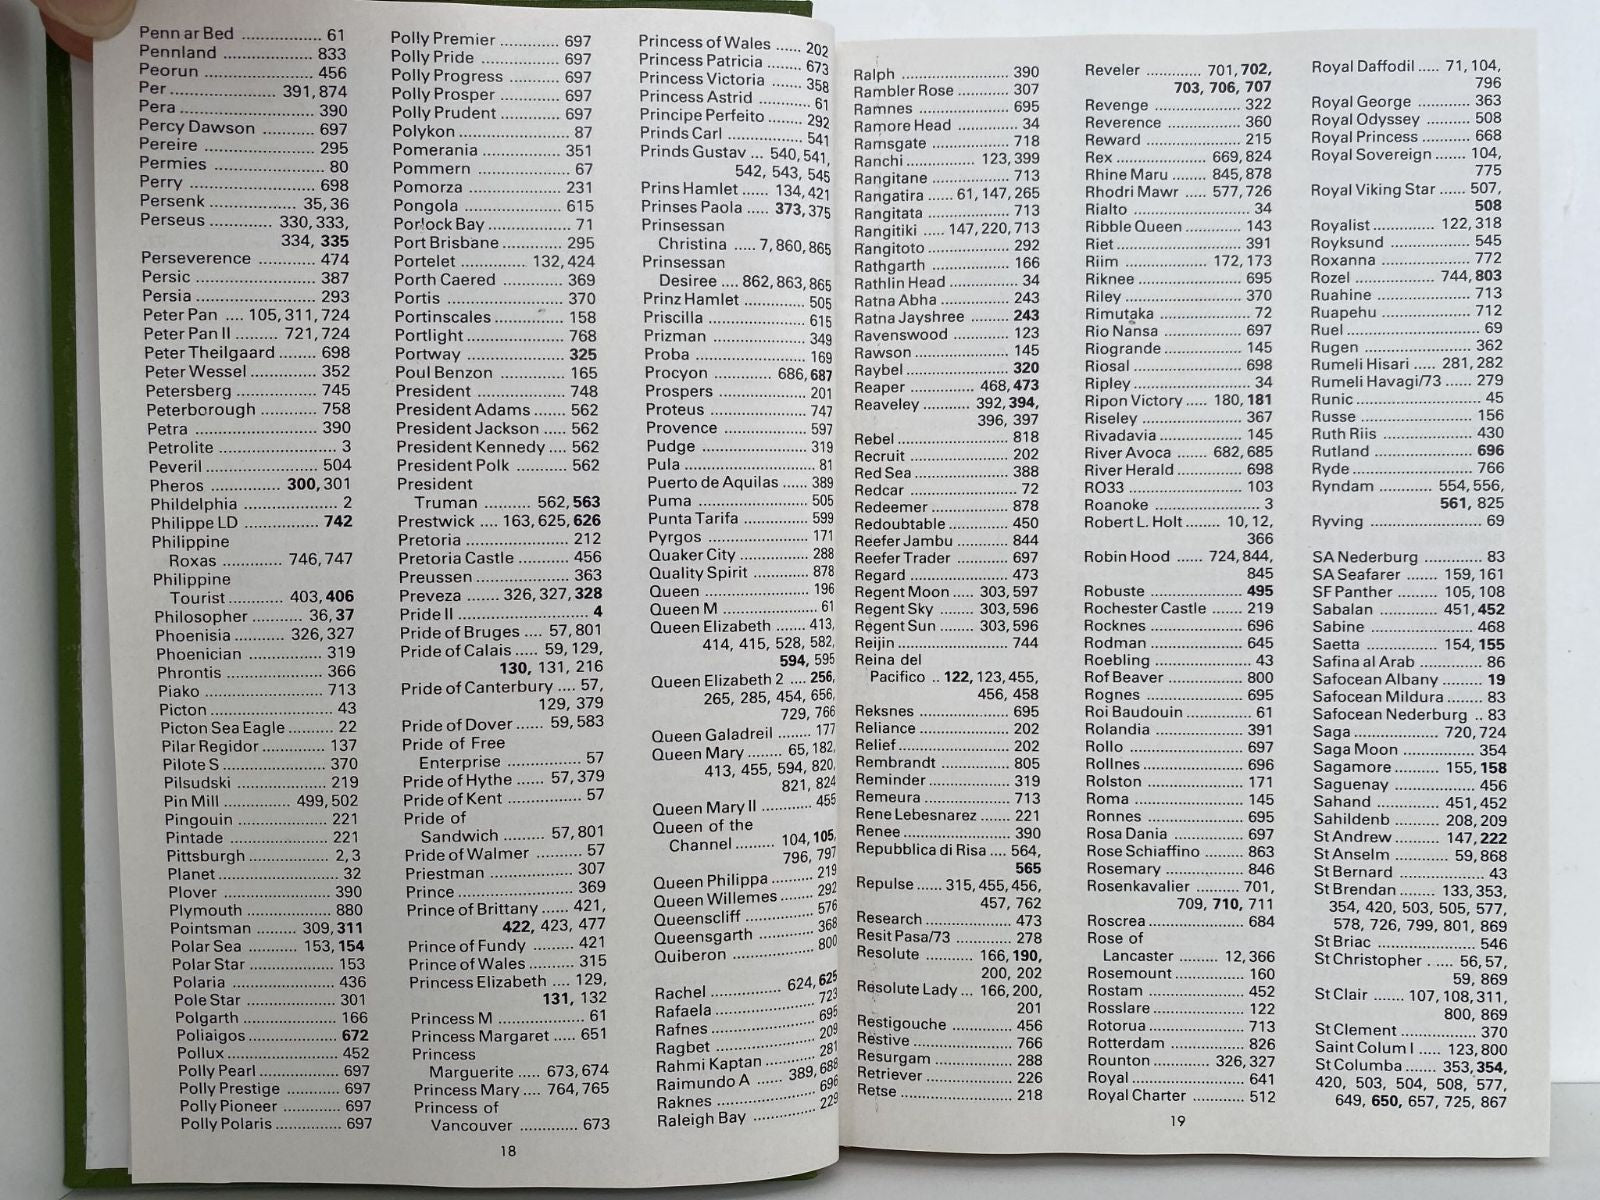 Penn ar Bed ................. 61
Pennland ................... 833
Peorun ...................... 456
Per ...................... 391, 874
Pera .......................... 390
Percy Dawson ........... 697
Pereire ...................... 295
Permies ....................... 80
Perry ......................... 698
Persenk .................. 35, 36
Perseus ............. 330, 333,
334, 335
Perseverence ............ 474
Persic ........................ 387
Persia ........................ 293
Peter Pan .... 105, 311, 724
Peter Pan II ......... 721, 724
Peter Theilgaard ........ 698
Peter Wessel .............. 352
Petersberg ................. 745
Peterborough ............ 758
Petra ......................... 390
Petrolite ....................... 3
Peveril ....................... 504
Pheros ............... 300, 301
Phildelphia ................... 2
Philippe LD ............... 742
Philippine
Roxas ............ 746, 747
Philippine
Tourist ........... 403, 406
Philosopher .......... 36, 37
Phoenisia ......... 326, 327
Phoenician ............... 319
Phrontis .................... 366
Piako ........................ 713
Picton ........................ 43
Picton Sea Eagle ......... 22
Pilar Regidor ............. 137
Pilote S ..................... 370
Pilsudski ................... 219
Pin Mill ............. 499, 502
Pingouin ................... 221
Pintade ..................... 221
Pittsburgh ................. 2, 3
Planet ........................ 32
Plover ....................... 390
Plymouth .................. 880
Pointsman ......... 309, 311
Polar Sea ........... 153, 154
Polar Star .................. 153
Polaria ...................... 436
Pole Star ................... 301
Polgarth .................... 166
Poliaigos ................... 672
Pollux ........................ 452
Polly Pearl ................. 697
Polly Prestige ............ 697
Polly Pioneer ............. 697
Polly Polaris .............. 697
Polly Premier ............. 697
Polly Pride ................. 697
Polly Progress ........... 697
Polly Prosper ............. 697
Polly Prudent ............. 697
Polykon ...................... 87
Pomerania ................. 351
Pommern .................... 67
Pomorza .................... 231
Pongola ..................... 615
Porlock Bay ................ 71
Port Brisbane ............. 295
Portelet .............. 132, 424
Porth Caered ............. 369
Portis ........................ 370
Portinscales .............. 158
Portlight .................... 768
Portway .................... 325
Poul Benzon .............. 165
President ................... 748
President Adams ....... 562
President Jackson ..... 562
President Kennedy .... 562
President Polk ........... 562
President
Truman .......... 562, 563
Prestwick .... 163, 625, 626
Pretoria ..................... 212
Pretoria Castle .......... 456
Preussen ................... 363
Preveza ...... 326, 327, 328
Pride II ......................... 4
Pride of Bruges .... 57, 801
Pride of Calais .... 59, 129,
130, 131, 216
Pride of Canterbury .... 57,
129, 379
Pride of Dover ...... 59, 583
Pride of Free
Enterprise ............... 57
Pride of Hythe ...... 57, 379
Pride of Kent .............. 57
Pride of
Sandwich ......... 57, 801
Pride of Walmer ......... 57
Priestman .................. 307
Prince ....................... 369
Prince of Brittany ...... 421,
422, 423, 477
Prince of Fundy ......... 421
Prince of Wales .......... 315
Princess Elizabeth .... 129,
131, 132
Princess M ................. 61
Princess Margaret ..... 651
Princess
Marguerite ..... 673, 674
Princess Mary .... 764, 765
Princess of
Vancouver ............. 673
Princess of Wales ...... 202
Princess Patricia ........ 673
Princess Victoria ........ 358
Princess Astrid ........... 61
Principe Perfeito ........ 292
Prinds Carl ................ 541
Prinds Gustav ... 540, 541,
542, 543, 545
Prins Hamlet ...... 134, 421
Prinses Paola ..... 373, 375
Prinsessan
Christina .... 7, 860, 865
Prinsessan
Desiree .... 862, 863, 865
Prinz Hamlet ............. 505
Priscilla ..................... 615
Prizman .................... 349
Proba ........................ 169
Procyon ............ 686, 687
Prospers ................... 201
Proteus ..................... 747
Provence ................... 597
Pudge ....................... 319
Pula ........................... 81
Puerto de Aquilas ...... 389
Puma ........................ 505
Punta Tarifa .............. 599
Pyrgos ...................... 171
Quaker City ............... 288
Quality Spirit ............. 878
Queen ....................... 196
Queen M .................... 61
Queen Elizabeth ....... 413,
414, 415, 528, 582,
594, 595
Queen Elizabeth 2 .... 256,
265, 285, 454, 656,
729, 766
Queen Galadreil ........ 177
Queen Mary ....... 65, 182,
413, 455, 594, 820,
821, 824
Queen Mary II ........... 455
Queen of the
Channel ......... 104, 105,
796, 797
Queen Philippa .......... 219
Queen Willemes ........ 292
Queenscliff ................ 576
Queensgarth ............. 368
Quiberon .................. 800
Rachel ............... 624, 625
Rafaela ...................... 723
Rafnes ....................... 695
Ragbet ...................... 209
Rahmi Kaptan ............ 281
Raimundo A ...... 389, 688
Raknes ...................... 696
Raleigh Bay ............... 229
18
Ralph ........................ 390
Rambler Rose ............ 307
Ramnes ..................... 695
Ramore Head ............. 34
Ramsgate .................. 718
Ranchi ............... 123, 399
Rangitane .................. 713
Rangatira ...... 61, 147, 265
Rangitata ................... 713
Rangitiki ..... 147, 220, 713
Rangitoto .................. 292
Rathgarth .................. 166
Rathlin Head .............. 34
Ratna Abha ................ 243
Ratna Jayshree .......... 243
Ravenswood .............. 123
Rawson ..................... 145
Raybel ....................... 320
Reaper ............... 468, 473
Reaveley ........... 392, 394,
396, 397
Rebel ......................... 818
Recruit ....................... 202
Red Sea ..................... 388
Redcar ........................ 72
Redeemer .................. 878
Redoubtable .............. 450
Reefer Jambu ............. 844
Reefer Trader ............. 697
Regard ....................... 473
Regent Moon .... 303, 597
Regent Sky ........ 303, 596
Regent Sun ........ 303, 596
Reijin ......................... 744
Reina del
Pacifico .. 122, 123, 455,
456, 458
Reksnes ..................... 695
Reliance ..................... 202
Relief ......................... 202
Rembrandt ................ 805
Reminder ................... 319
Remeura .................... 713
Rene Lebesnarez ....... 221
Renee ........................ 390
Repubblica di Risa .... 564,
565
Repulse ...... 315, 455, 456,
457, 762
Research ................... 473
Resit Pasa/73 ............. 278
Resolute ............ 166, 190,
200, 202
Resolute Lady ... 166, 200,
201
Restigouche .............. 456
Restive ...................... 766
Resurgam .................. 288
Retriever .................... 226
Retse ......................... 218
Reveler ............. 701, 702,
703, 706, 707
Revenge .................... 322
Reverence ................. 360
Reward ...................... 215
Rex .................... 669, 824
Rhine Maru ....... 845, 878
Rhodri Mawr ..... 577, 726
Rialto ......................... 34
Ribble Queen ............. 143
Riet ........................... 391
Riim .................. 172, 173
Riknee ....................... 695
Riley .......................... 370
Rimutaka ................... 72
Rio Nansa ................. 697
Riogrande .................. 145
Riosal ........................ 698
Ripley ........................ 34
Ripon Victory ..... 180, 181
Riseley ...................... 367
Rivadavia .................. 145
River Avoca ....... 682, 685
River Herald .............. 698
RO33 ........................ 103
Roanoke ...................... 3
Robert L. Holt ........ 10, 12,
366
Robin Hood ...... 724, 844,
845
Robuste .................... 495
Rochester Castle ....... 219
Rocknes .................... 696
Rodman .................... 645
Roebling .................... 43
Rof Beaver ................ 800
Rognes ...................... 695
Roi Baudouin ............. 61
Rolandia .................... 391
Rollo .......................... 697
Rollnes ...................... 696
Rolston ...................... 171
Roma ........................ 145
Ronnes ...................... 695
Rosa Dania ................ 697
Rose Schiaffino ......... 863
Rosemary .................. 846
Rosenkavalier .......... 701,
709, 710, 711
Roscrea ..................... 684
Rose of
Lancaster ......... 12, 366
Rosemount ............... 160
Rostam ..................... 452
Rosslare .................... 122
Rotorua ..................... 713
Rotterdam ................. 826
Rounton ............ 326, 327
Royal ........................ 641
Royal Charter ............ 512
Royal Daffodil ..... 71, 104,
796
Royal George ............ 363
Royal Odyssey .......... 508
Royal Princess ........... 668
Royal Sovereign ....... 104,
775
Royal Viking Star ...... 507,
508
Royalist .............. 122, 318
Royksund .................. 545
Roxanna .................... 772
Rozel ................. 744, 803
Ruahine ..................... 713
Ruapehu .................... 712
Ruel ........................... 69
Rugen ........................ 362
Rumeli Hisari .... 281, 282
Rumeli Havagi/73 ...... 279
Runic ......................... 45
Russe ........................ 156
Ruth Riis ................... 430
Rutland ..................... 696
Ryde .......................... 766
Ryndam ............ 554, 556,
561, 825
Ryving ....................... 69
SA Nederburg ............ 83
SA Seafarer ....... 159, 161
SF Panther ......... 105, 108
Sabalan ............. 451, 452
Sabine ....................... 468
Saetta ................ 154, 155
Safina al Arab ............ 86
Safocean Albany ......... 19
Safocean Mildura ....... 83
Safocean Nederburg .. 83
Saga .................. 720, 724
Saga Moon ................ 354
Sagamore .......... 155, 158
Saguenay .................. 456
Sahand .............. 451, 452
Sahildenb .......... 208, 209
St Andrew .......... 147, 222
St Anselm ........... 59, 868
St Bernard .................. 43
St Brendan ........ 133, 353,
354, 420, 503, 505, 577,
578, 726, 799, 801, 869
St Briac ...................... 546
St Christopher . .... 56, 57,
59, 869
St Clair ....... 107, 108, 311,
800, 869
St Clement ................. 370
Saint Colum I ..... 123, 800
St Columba ....... 353, 354,
420, 503, 504, 508, 577,
649, 650, 657, 725, 867
19